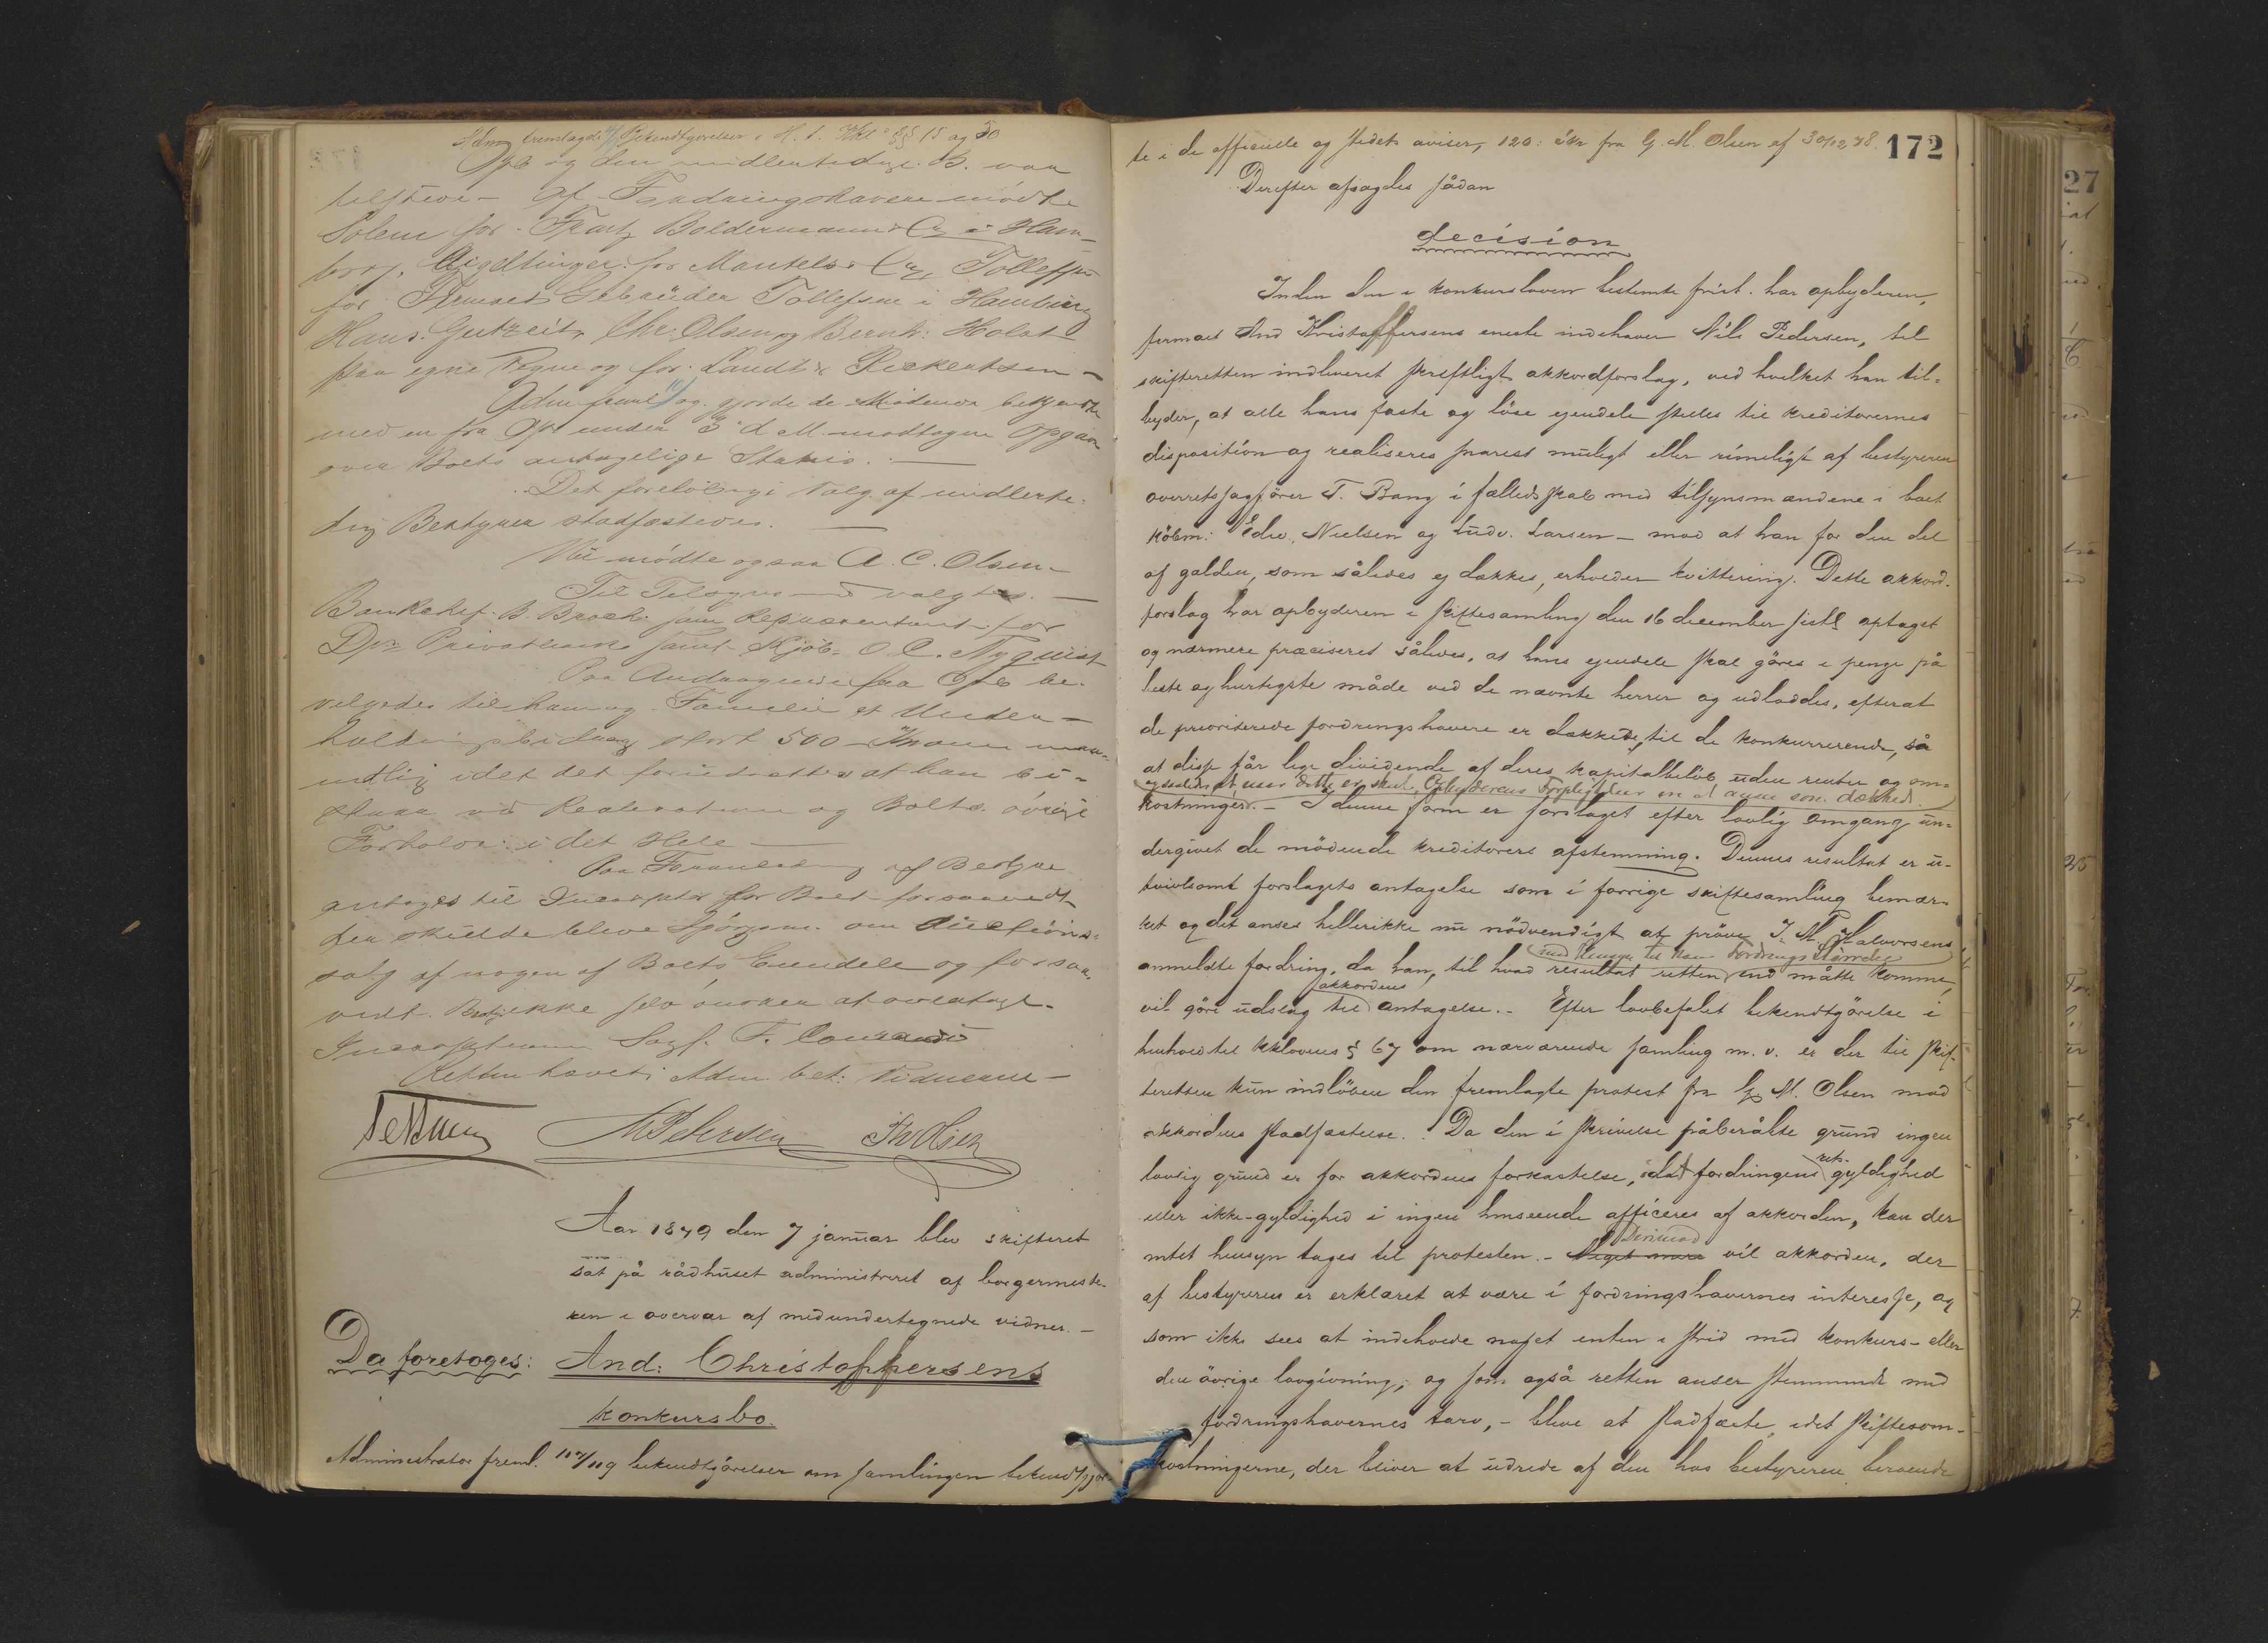 Adm fremlagde Bekendtgjørelser i H. t. Kkl §§ 15 og 50
Opb og den midlertidige B. var
tilstede - Af Fordringshavere mødte
Solem for Frantz Boldermann & Co i Ham-
borg, for Mantels & Co, Tollefsen
for Firmaet Gebrüder Tollefsen i Hamburg
Hans Gutzeit, Chr. Olsen og Bernh. Holst
paa egne Vegne og for Landt & Rickertsen -
Adm freml og gjorde de Mødende bekjendt
med en fra Opb under 3 d M modtagen Opgave
over Boets antagelige Status. -
Det foreløbige Valg af midlerti-
dig Bestyrer stadfæstedes. -
Nu mødte ogsaa A. C. Olsen -
Til Tilsynsmænd valgtes. -
Bankchef B. Broch som Repræsentant for
Dr Privatbank samt Kjøb. O. C. Nyquist
Paa Andragende fra Opb be-
vilgedes til ham og Familie et Under-
holdningsbidrag stort 500 Kroner maa-
nedlig idet det forudsattes at han bi-
staar ved Realisationen og Boets øvrige
Forholde i det Hele -
Paa Foranledning af Bestyre
antoges til Incassator for Boet forsaavidt
der skulde blive Spørgsm. om Auctions-
salg af nogen af Boets Eiendele og forsaa-
vidt Bestyr ikke selv ønsker at overtage
Incassationen Sagf. F. Conradi
Retten hævet; Adm. bet: Vidnerne -
M Pedersen Th Olsen
Aar 1879 den 7 januar blev skifteret
sat på rådhuset administreret af borgermeste-
ren i overvær af medundertegnede vidner. -
Da foretoges: And: Christoffersens
konkursbo.
Administrator freml. 117/119 bekendtgjørelser om samlingen bekendtgjor-
172
te i de officielle og stedets aviser, 120: skr fra G. M. Olsen af 30/12 78.
Derefter afsagdes sådan
decision
Inden den i konkursloven bestemte frist har opbyderen,
firmaet And Kristoffersens eneste indehaver Nils Pedersen, til
skifteretten indleveret skriftligt akkordforslag, ved hvilket han til-
byder, at alle hans faste og løse ejendele stilles til kreditorernes
disposition og realiseres snarest muligt eller rimeligt af bestyreren
overretssagfører T. Bang i fælledsskab med tilsynsmændene i boet
købm: Edv. Nielsen og Ludv. Larsen - mod at han for den del
af gælden, som således ej dækkes, erholder kvittering. Dette akkord-
forslag har opbyderen i skiftesamling den 16 december sidstl optaget
og nærmere præciseret således, at hans ejendele skal gøres i penge på
beste og hurtigste måde ved de nævnte herrer og udloddes, efterat
de prioriterede fordringshavere er dækkede, til de konkurrerende, så
at disse får lige dividende af deres kapitalbeløb uden renter og om-
og saaledes at naar dette er skeet, Opbyderens Forpligtelser er at anse som dækkede.
kostninger. - I denne form er forslaget efter lovlig omgang un-
dergivet de mødende kreditorers afstemning. Dennes resultat er u-
tvivlsomt forslagets antagelse som i forrige skiftesamling bemær-
ket og det anses hellerikke nu nødvendigt at prøve J. M. Halvorsens
med Hensyn til hans Fordrings Størrelse
anmeldte fordring, da han, til hvad resultat retten end måtte komme,
akkordens
vil gøre udslag til antagelse. - Efter lovbefalet bekendtgörelse i
henhold til kklovens § 67 om nærværende samling m. v. er der til skif-
teretten kun indløben den fremlagte protest fra G. M. Olsen mod
akkordens stadfæstelse. Da den i skrivelse påberåbte grund ingen
lovlig grund er for akkordens forkastelse, idet fordringens rets-gyldighed
eller ikke-gyldighed i ingen henseende afficeres af akkorden, kan der
intet hensyn tages til protesten. - Derimod vil akkorden, der
af bestyreren er erklæret at være i fordringshavernes interesse, og
som ikke sees at indeholde noget enten i strid med konkurs- eller
den øvrige lovgivning, og som også retten anser stemmende med
fordringshavernes tarv, - blive at stadfæste, idet skifteom-
kostningerne, der bliver at udrede af den hos bestyreren beroende
27